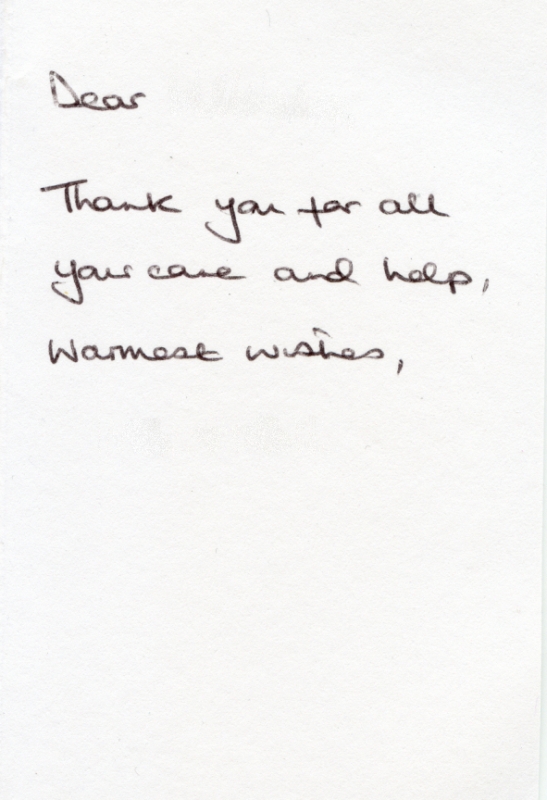 Dear
Thank you for all
your care and help,
Warmest wishes,